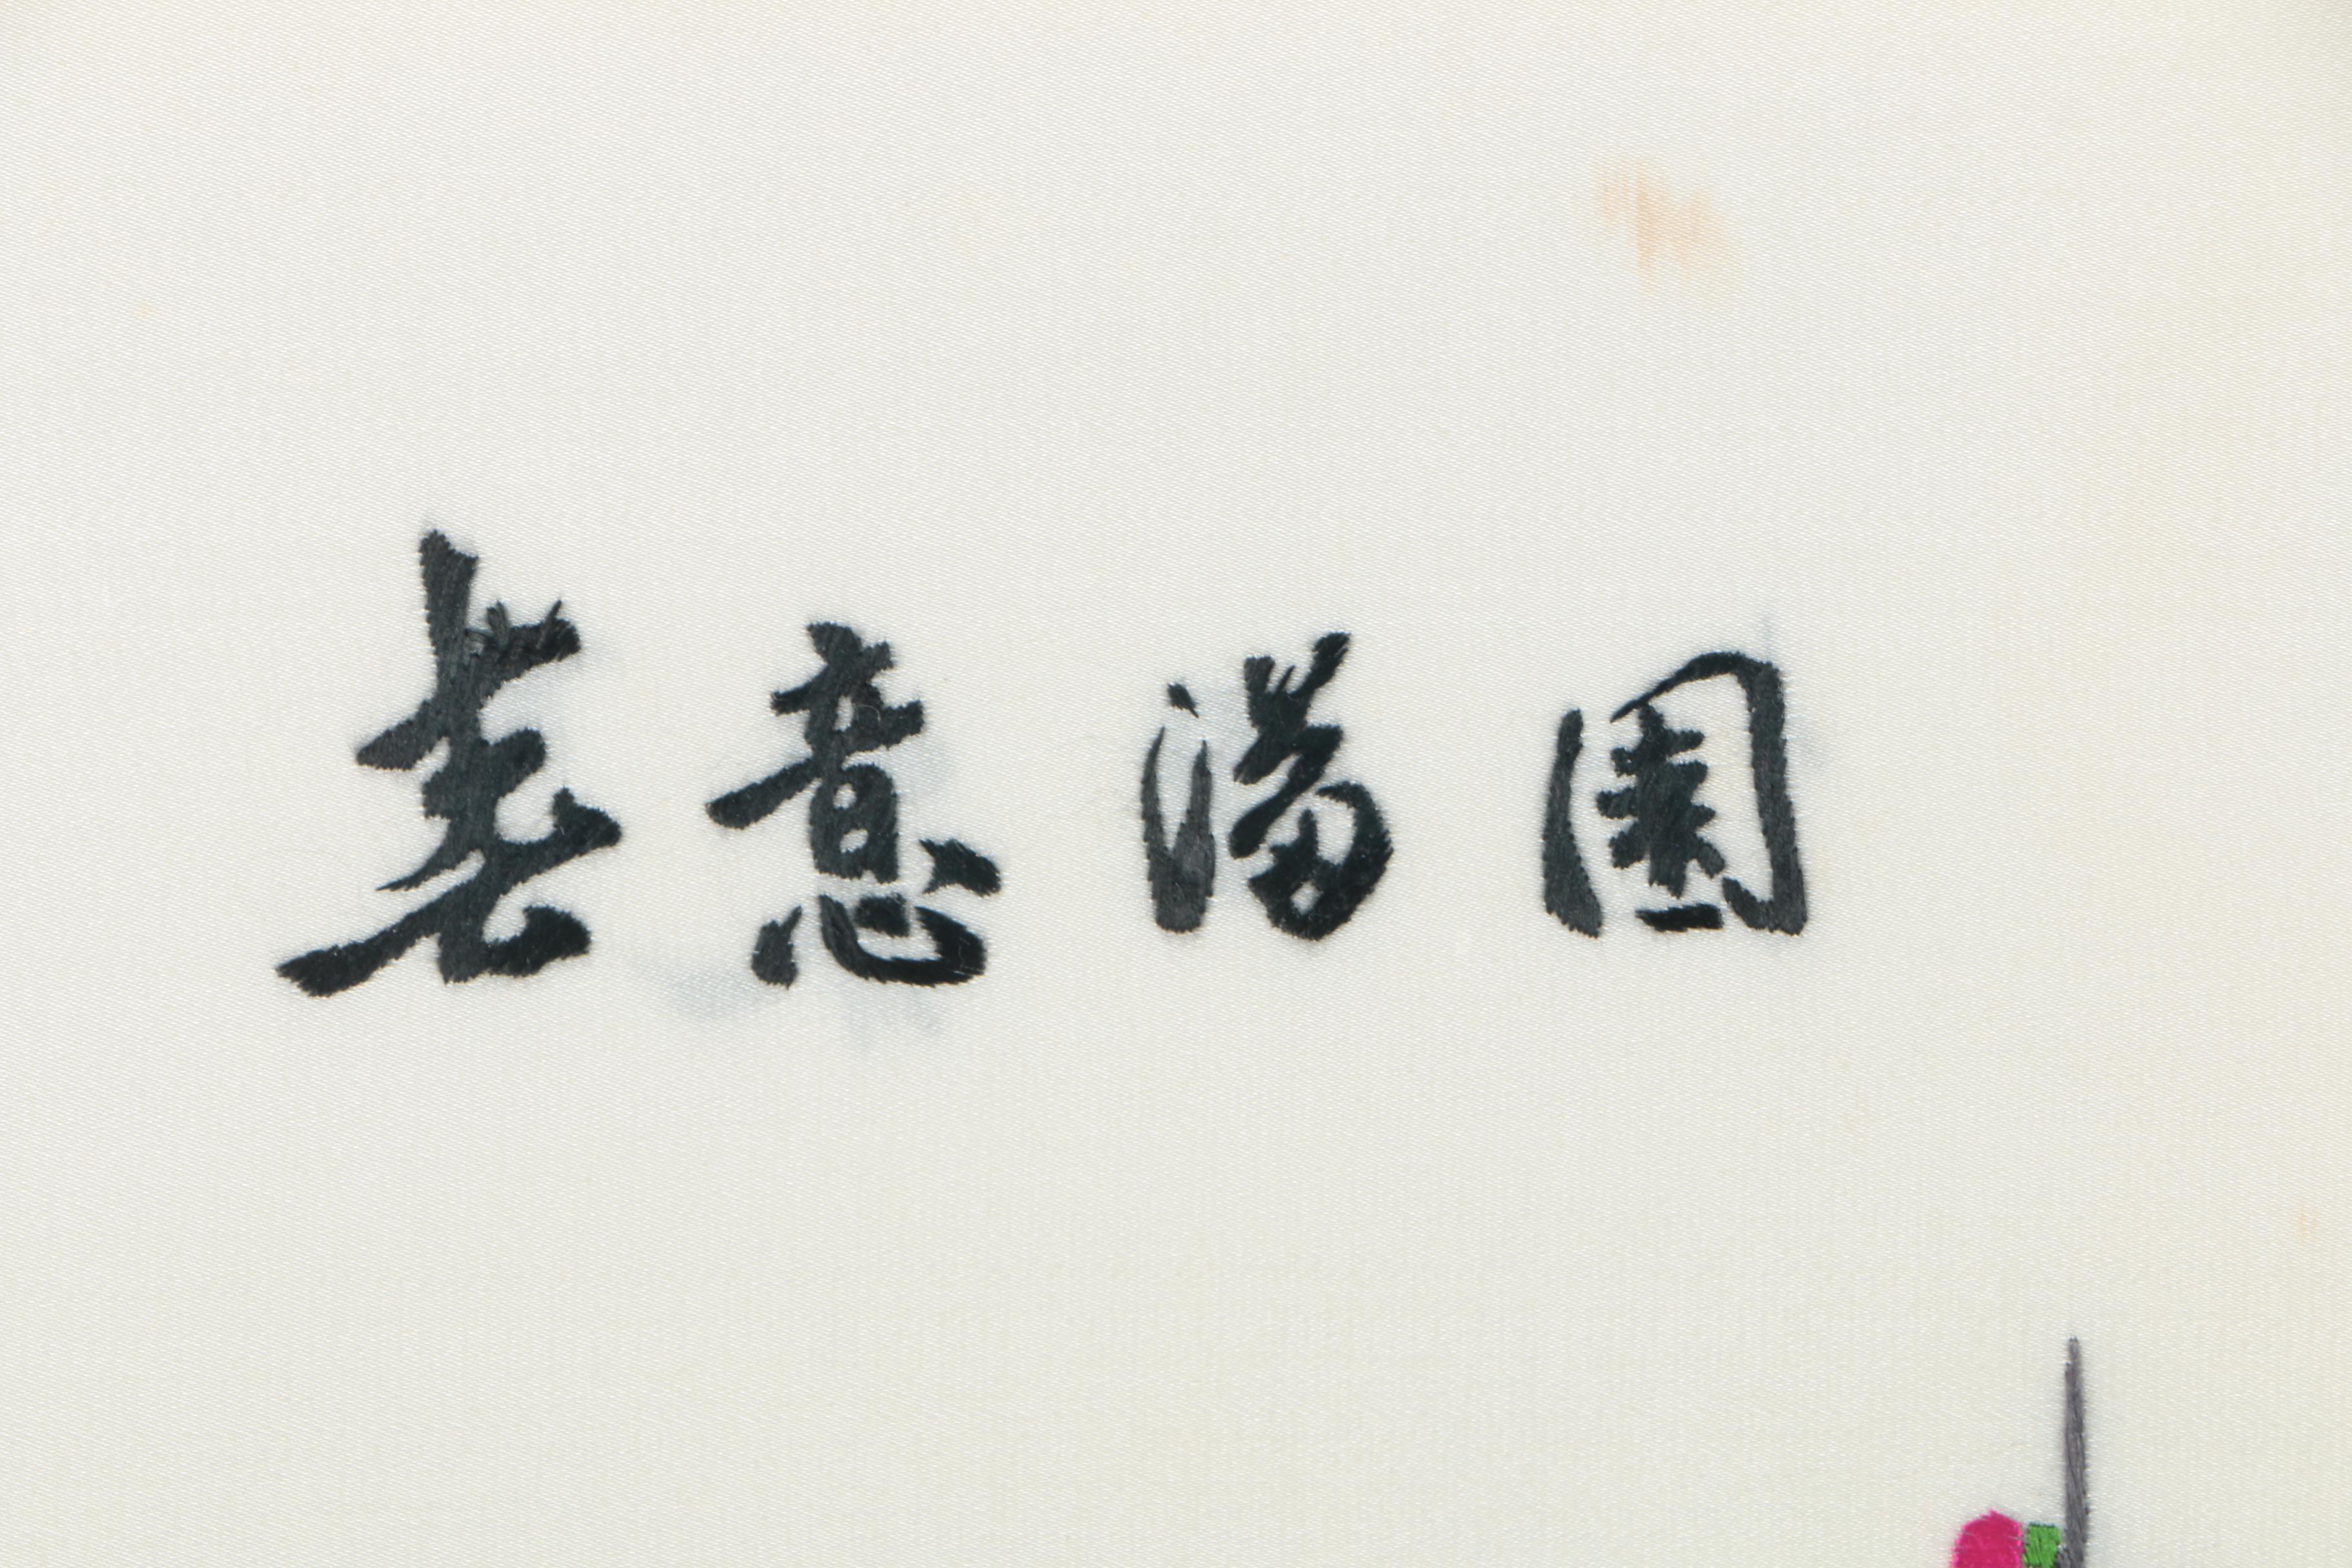 春意滿園